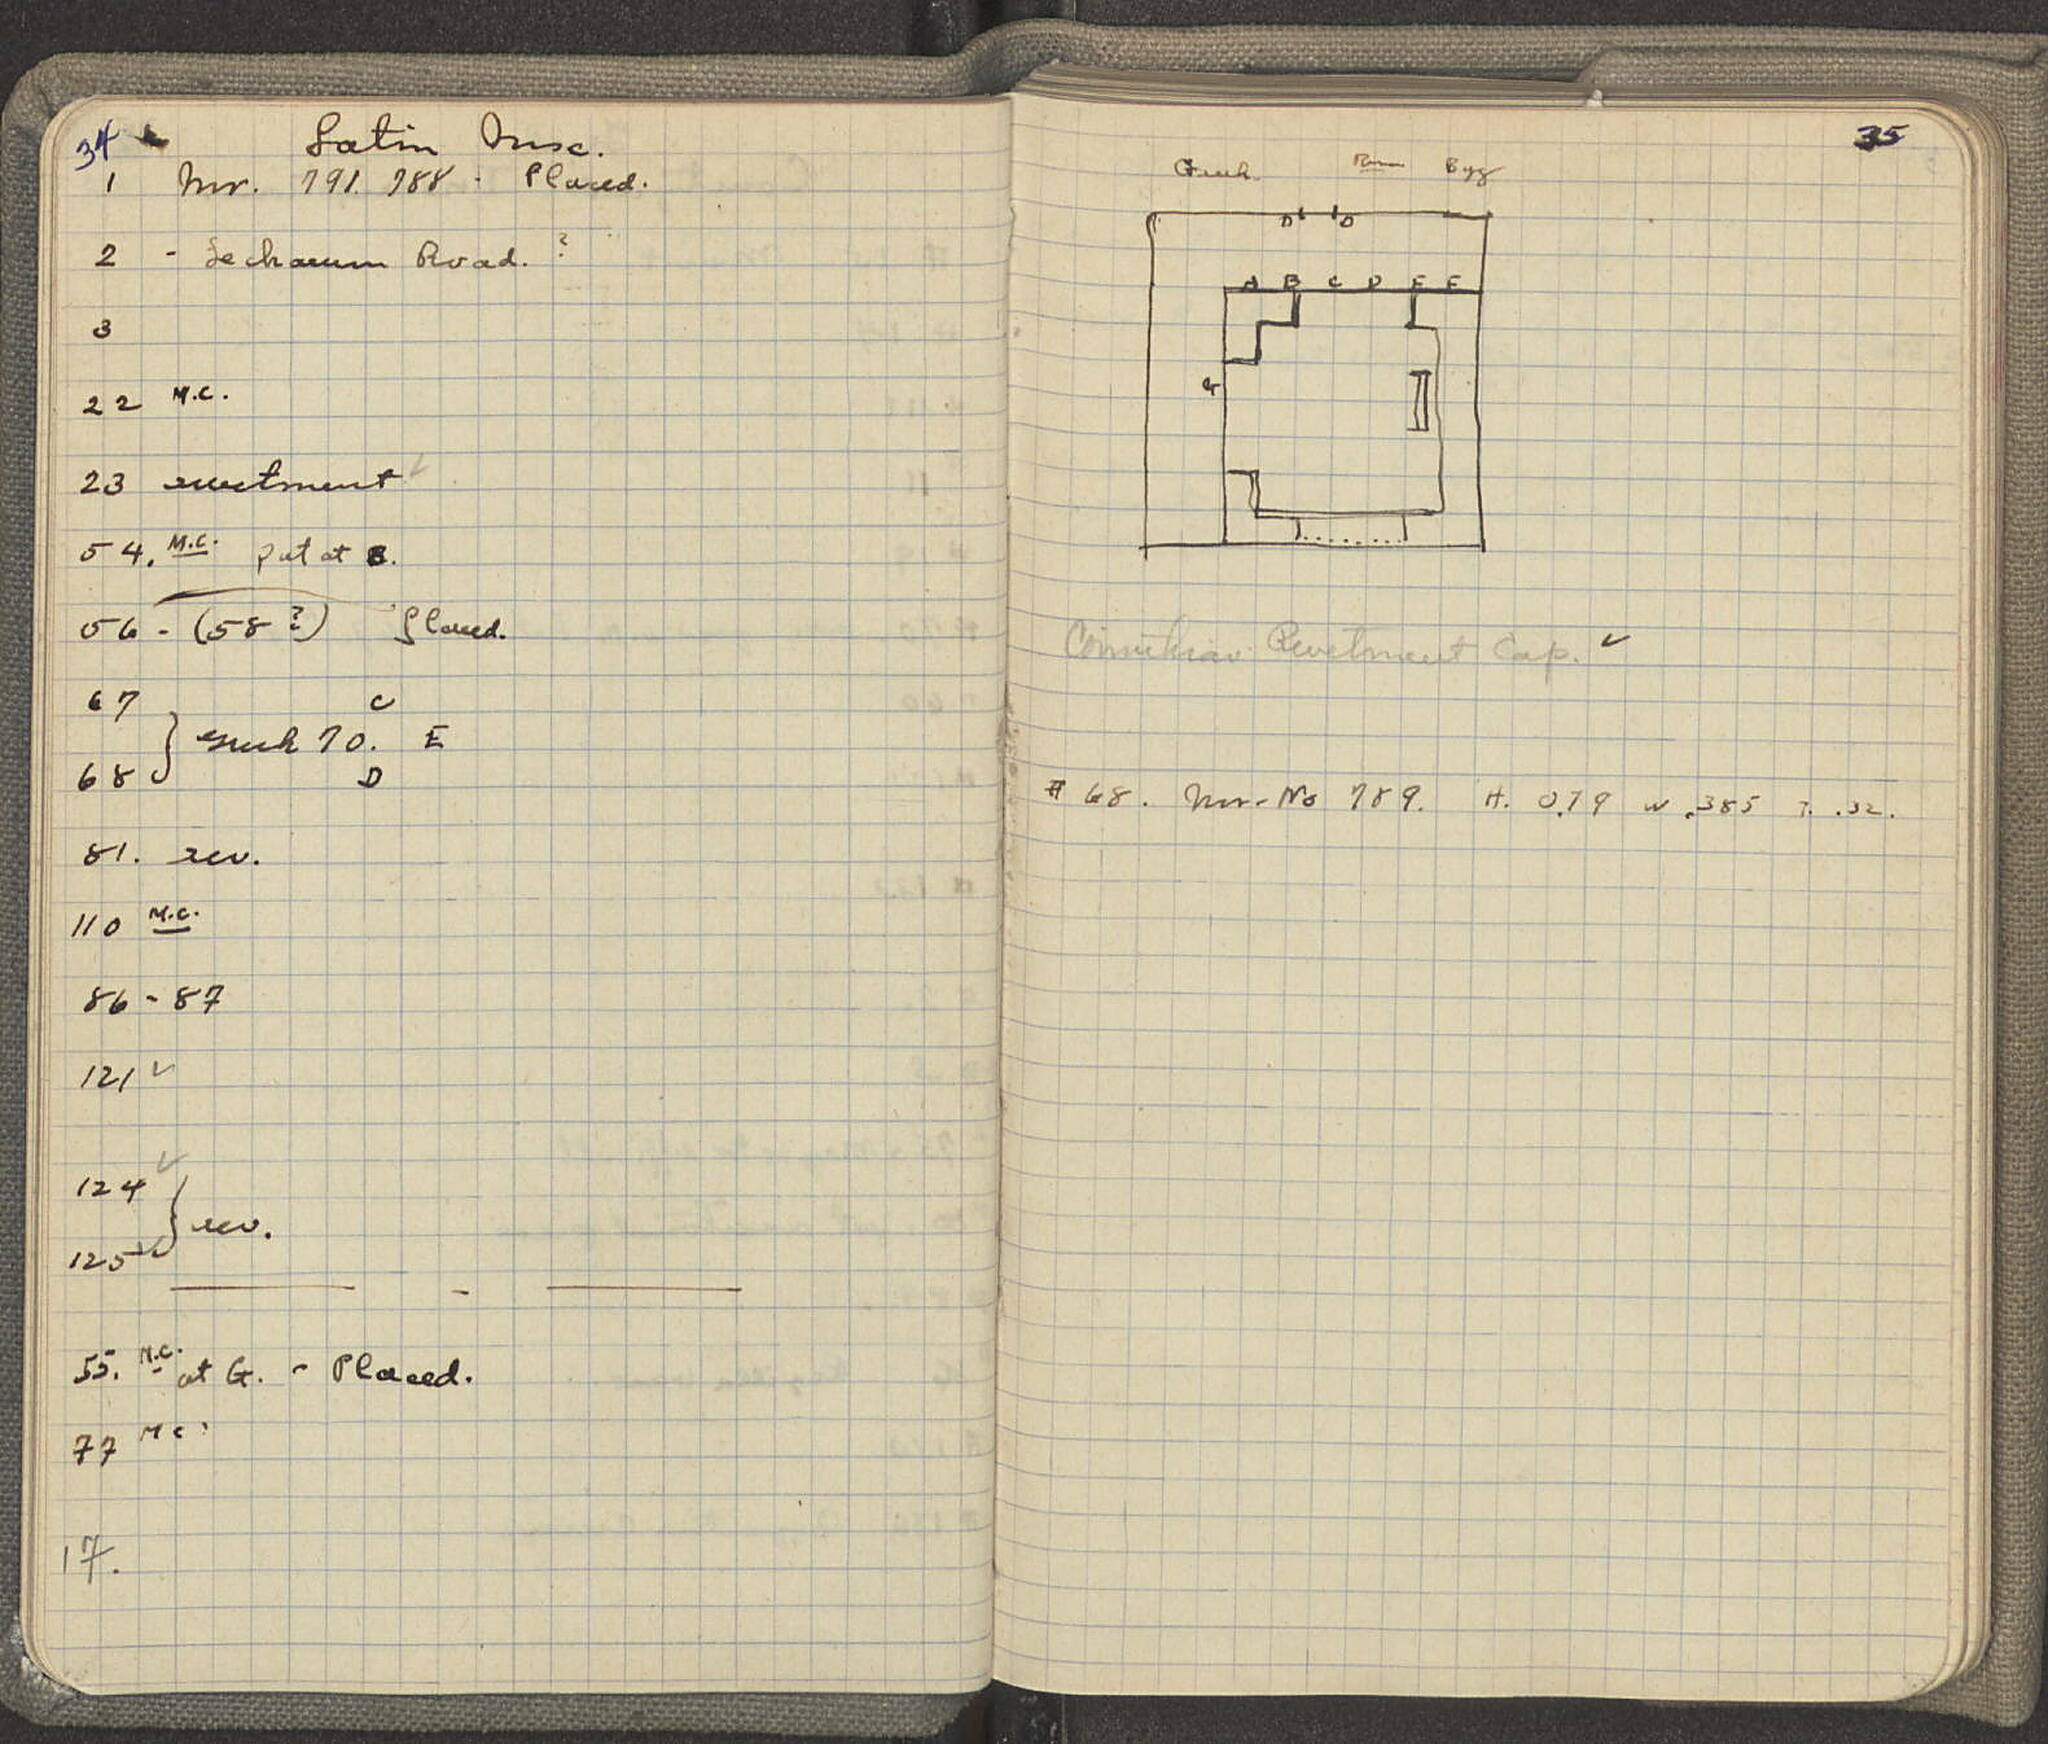 34
Latin Insc.
1 Inv. 791. 788. Placed.
2 - Lechaeum Road. ?
3
22 M.C.
23 revetment ✓
54. M.C. put at B.
56 - (58?) Placed.
67 C
} Greek 70. E
68 D
81. rev.
110 M.C.
86 - 87
121 ✓
124 ✓
} rev.
125 ✓
55. M.C. at G. - Placed.
77 M.C.
17.
35
Greek. Rom Byz
D D
A B C D E F
G
Corinthian Revetment Cap. ✓
# 68. Inv-No 789. H. 0.79 W .385 T. .32.